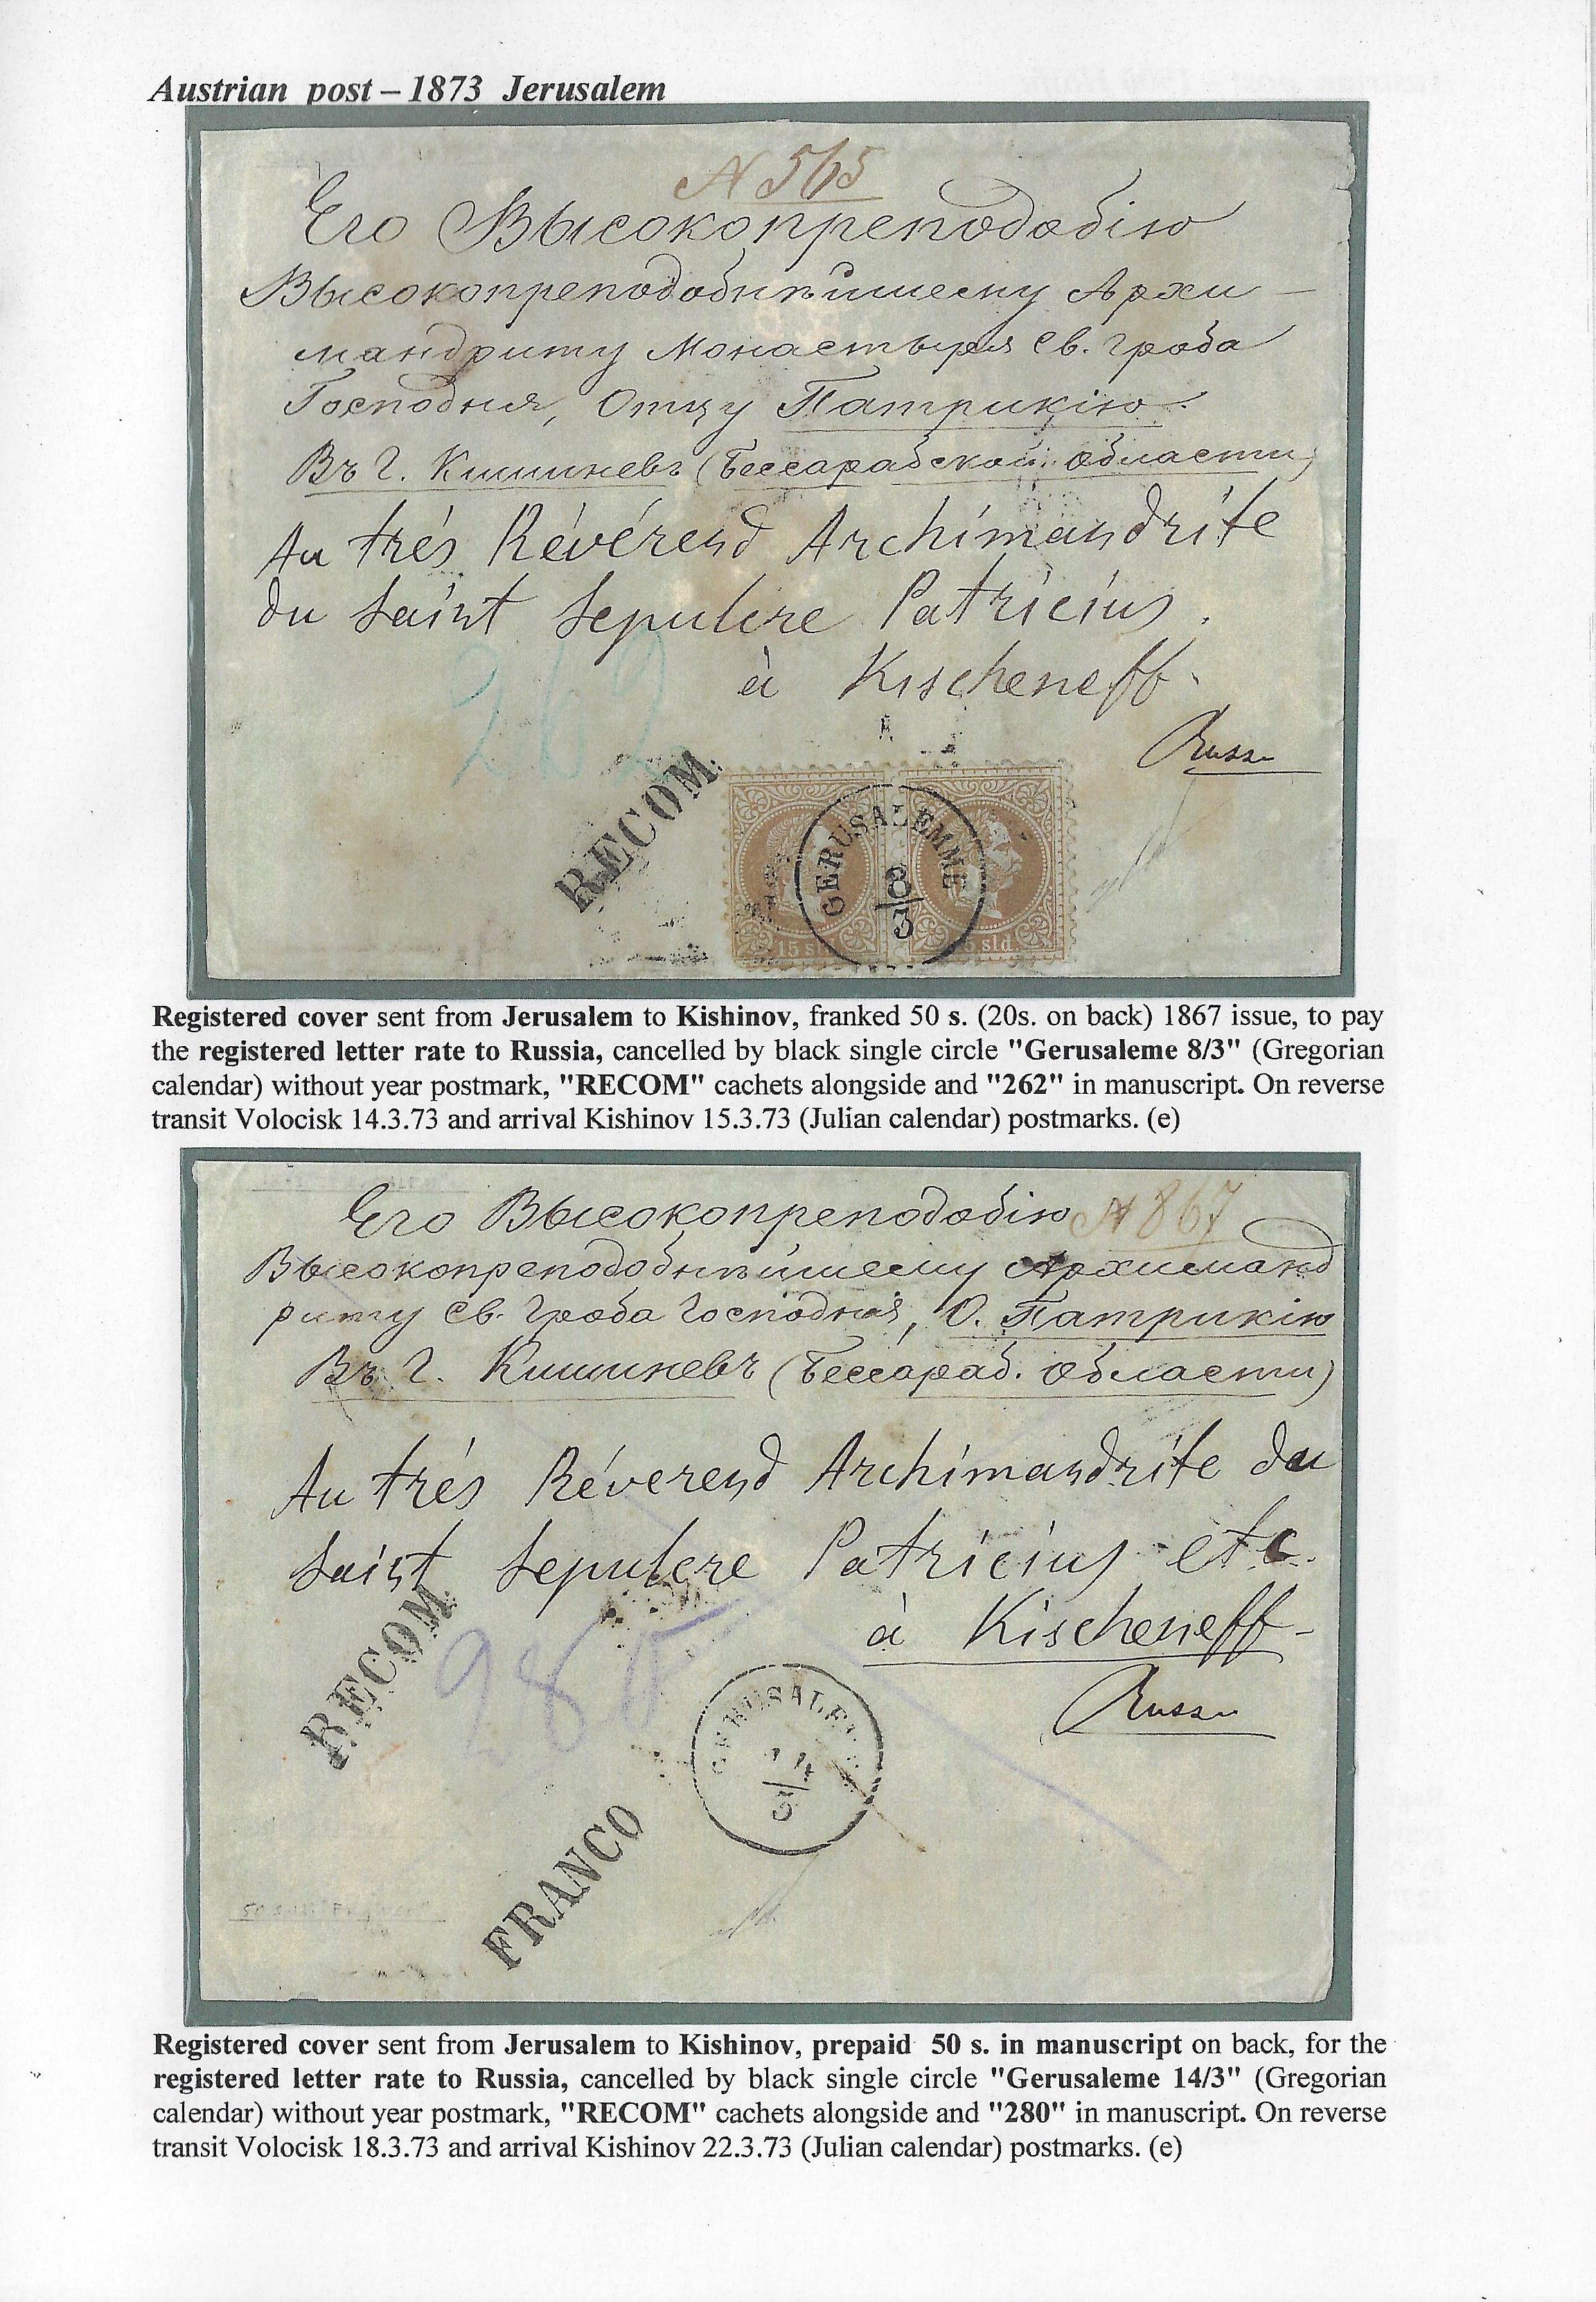 Austrian post – 1873 Jerusalem
N 565
Его Высокопреподобію
Высокопреподобнѣйшему Архи-
мандриту Монастыря Св. Гроба
Господня, Отцу Патрикію.
Въ г. Кишиневъ (Бессарабской области)
Au trés Révérend Archimandrite
du Saint Sepulcre Patricius.
à Kischeneff
262
Russ
RECOM.
GERUSALEMME
8/3
15 sld.
Registered cover sent from Jerusalem to Kishinov, franked 50 s. (20s. on back) 1867 issue, to pay
the registered letter rate to Russia, cancelled by black single circle "Gerusaleme 8/3" (Gregorian
calendar) without year postmark, "RECOM" cachets alongside and "262" in manuscript. On reverse
transit Volocisk 14.3.73 and arrival Kishinov 15.3.73 (Julian calendar) postmarks. (e)
Его Высокопреподобію N 867
Высокопреподобнѣйшему Архиманд
риту Св. Гроба Господня, О. Патрикію
Въ г. Кишиневъ (Бессараб. области)
Au trés Réverend Archimandrite du
Saint Sepulcre Patricius etc.
à Kischeneff-
RECOM.
Russ
14/3
FRANCO
Registered cover sent from Jerusalem to Kishinov, prepaid 50 s. in manuscript on back, for the
registered letter rate to Russia, cancelled by black single circle "Gerusaleme 14/3" (Gregorian
calendar) without year postmark, "RECOM" cachets alongside and "280" in manuscript. On reverse
transit Volocisk 18.3.73 and arrival Kishinov 22.3.73 (Julian calendar) postmarks. (e)